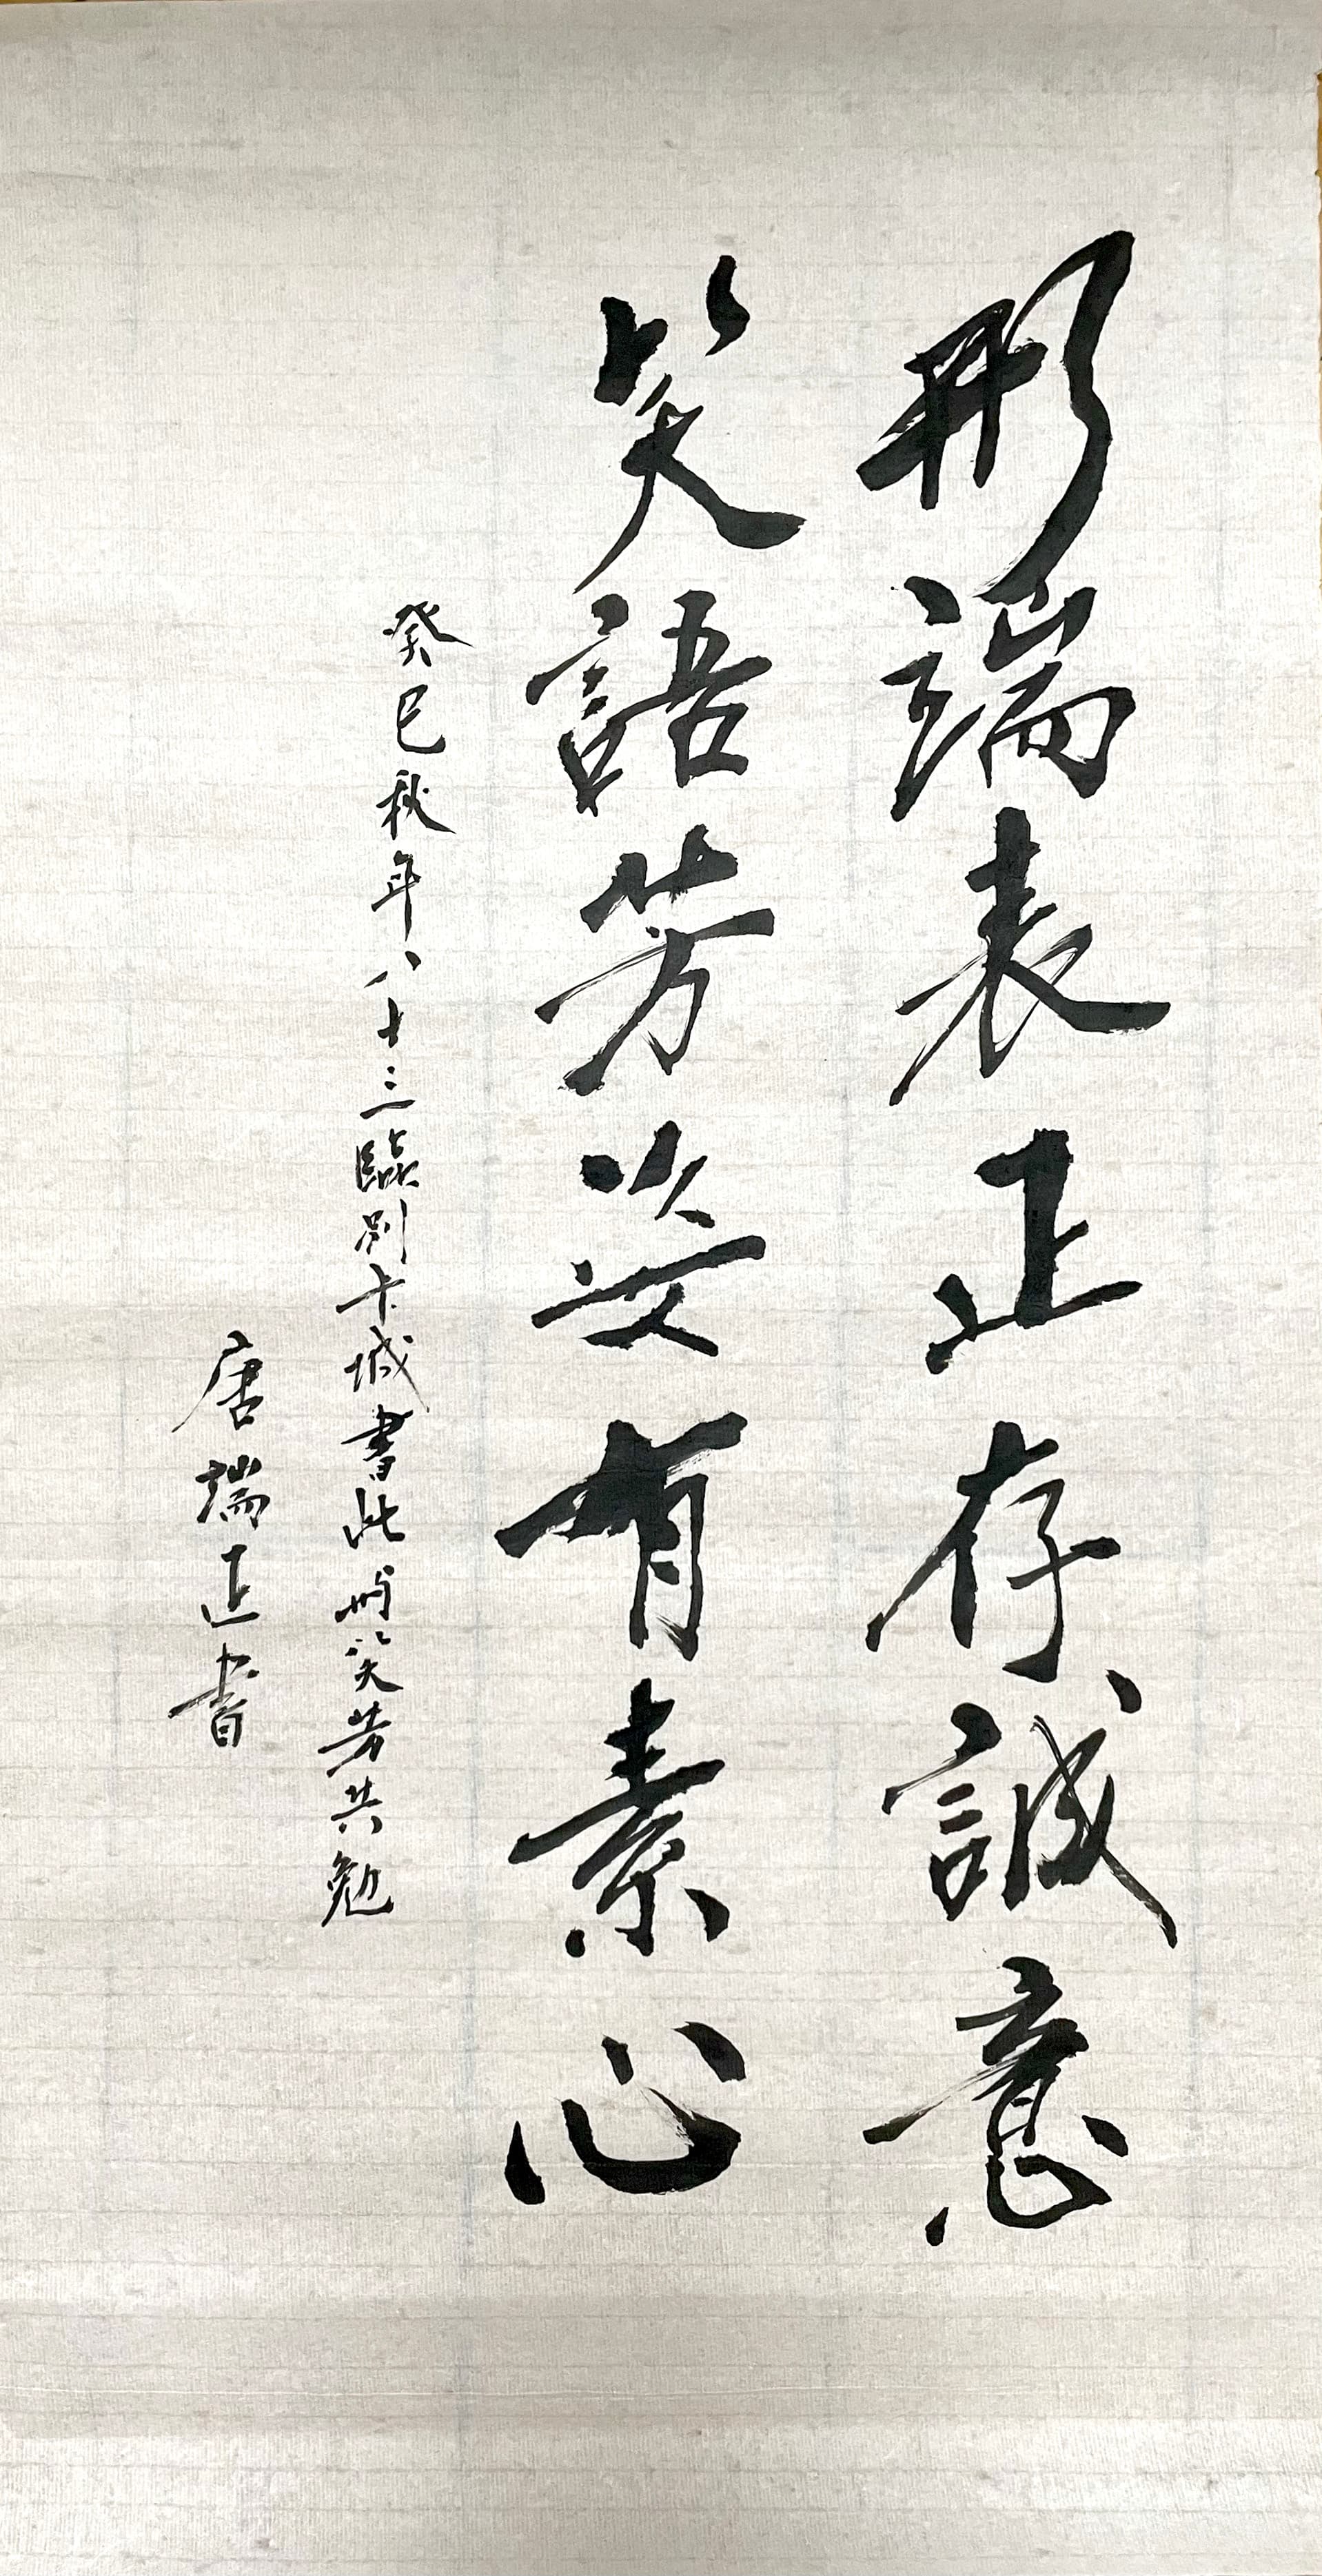 形端表正存誠意
笑語芳姿有素心
癸巳秋年八十三臨別卡城書此與笑芳共勉
唐端正書